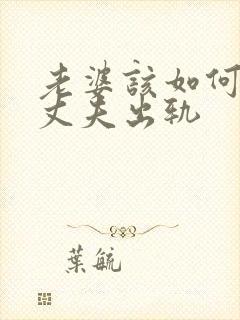 老婆該如何
丈夫出軌
葉毓